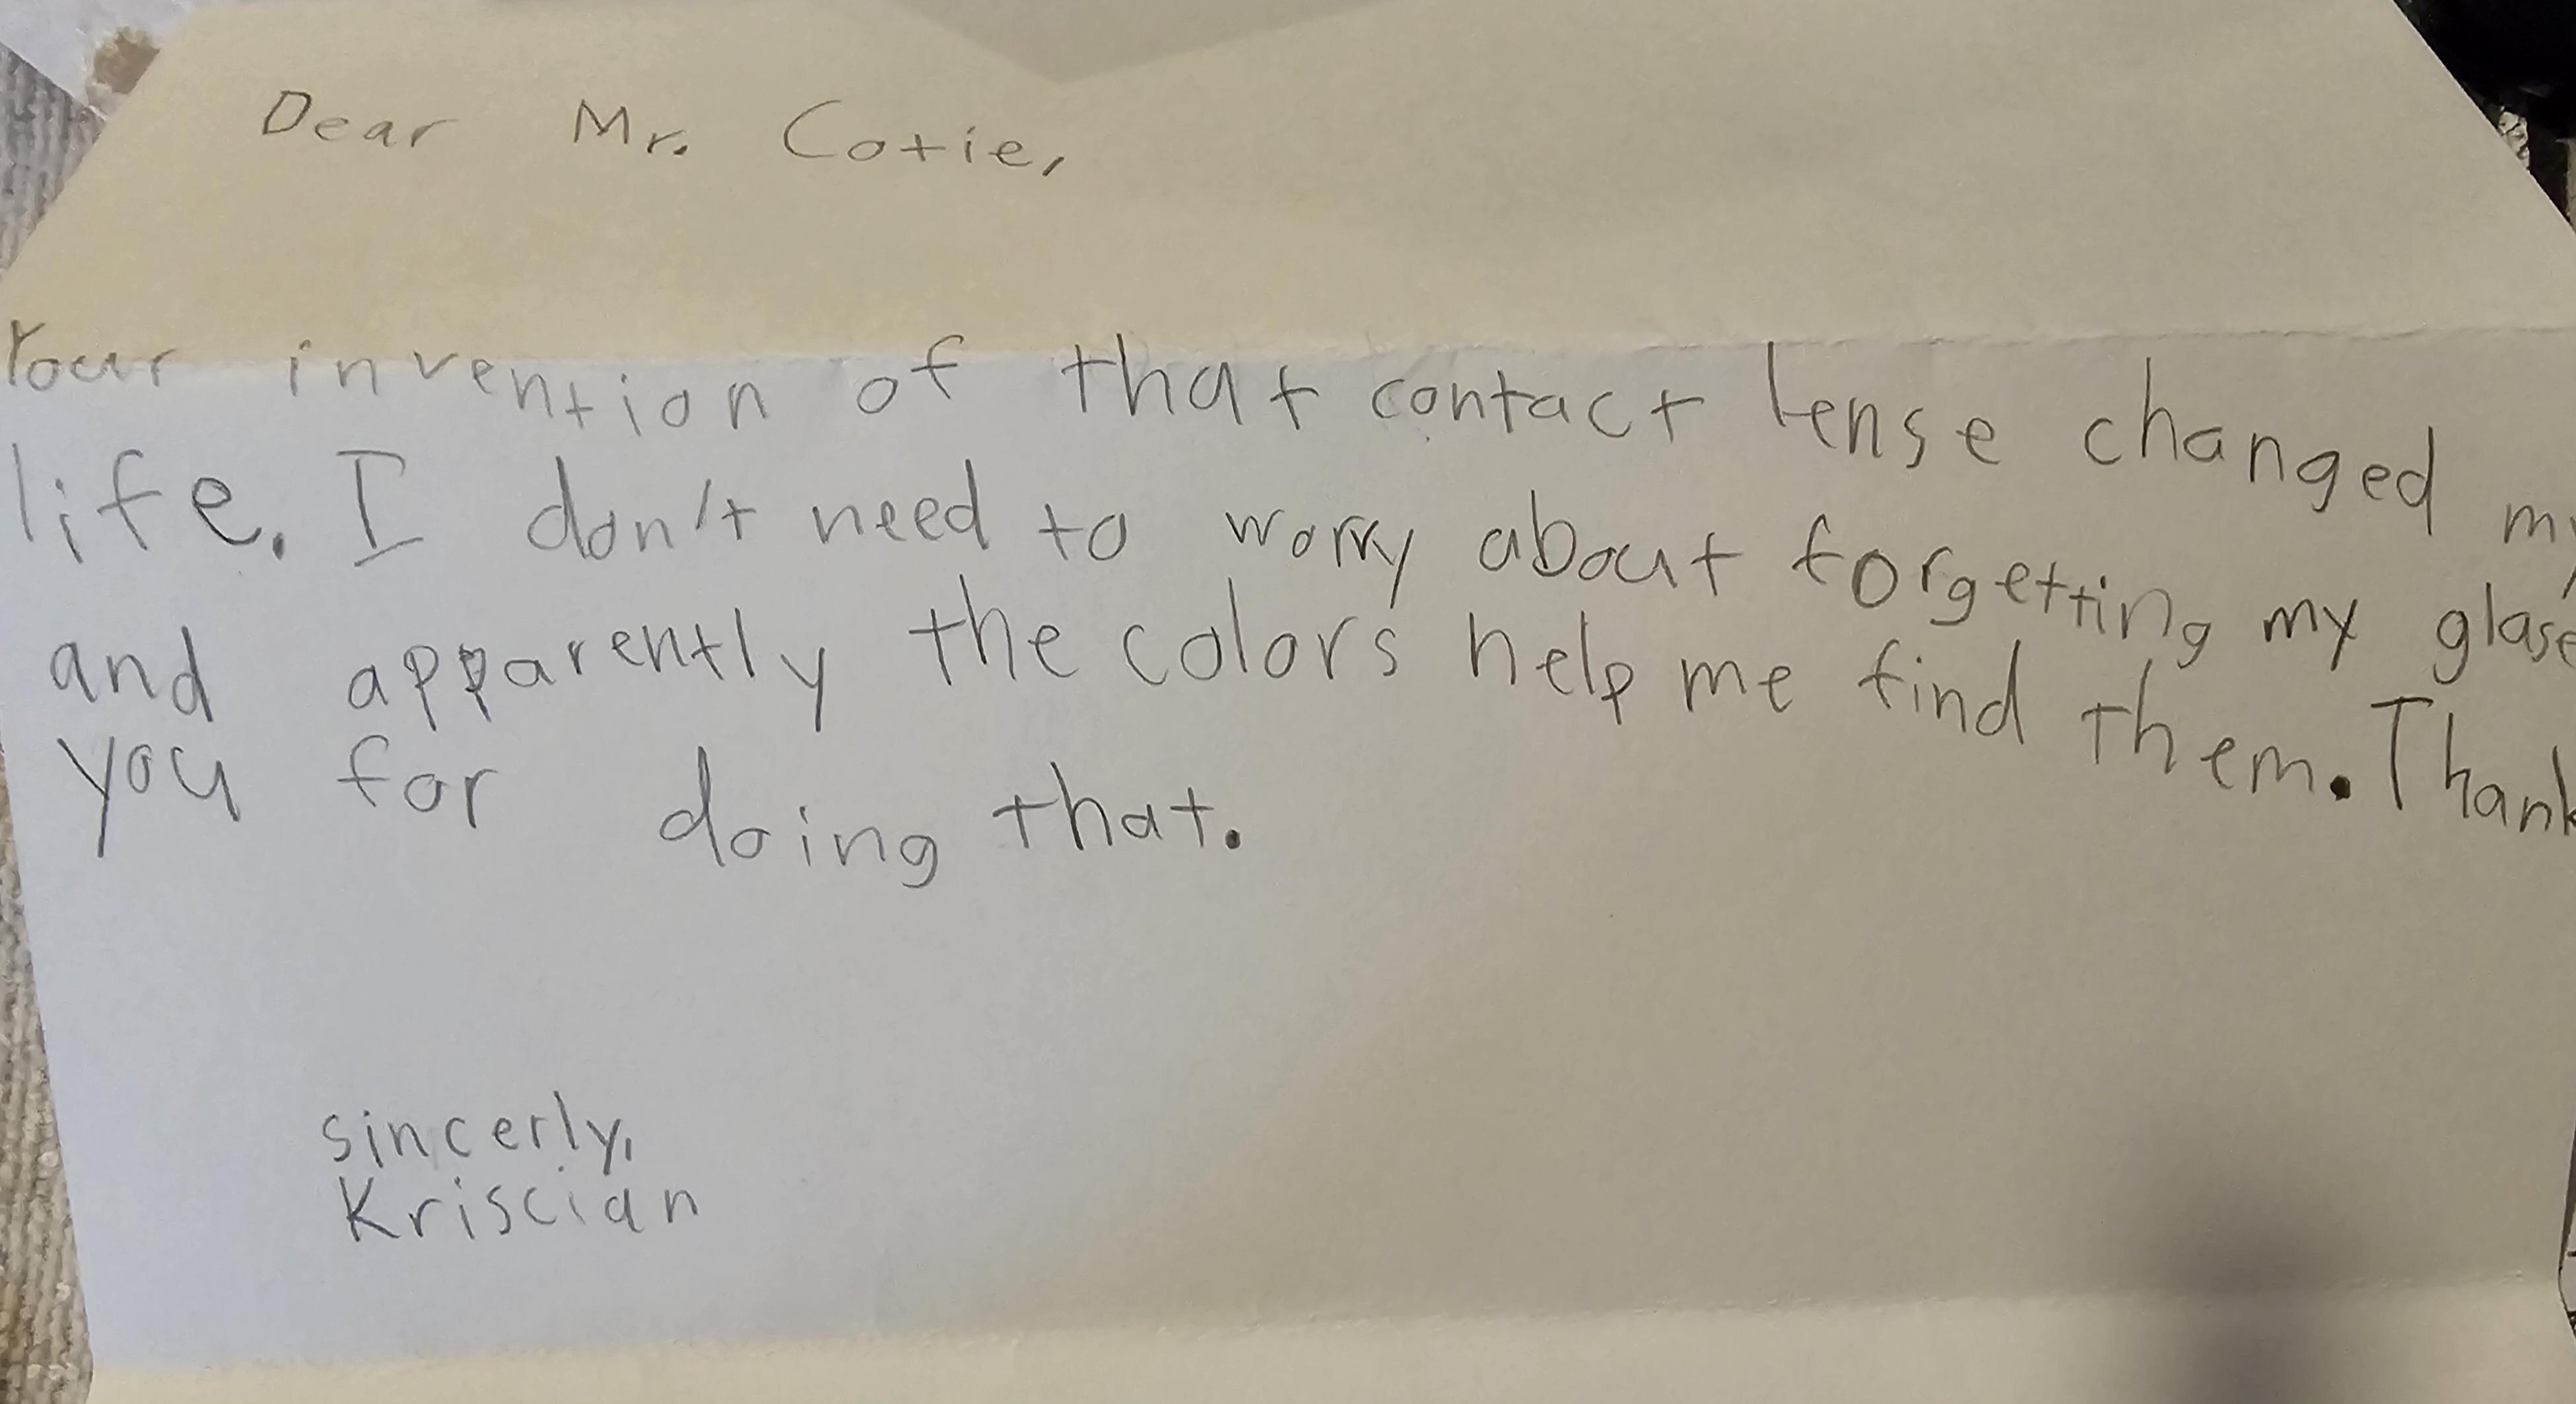 Dear Mr. Cotie,
Your invention of that contact lense changed my
life. I don't need to worry about forgetting my glase
and apparently the colors help me find them. Thank
you for doing that.
sincerly,
Kriscian